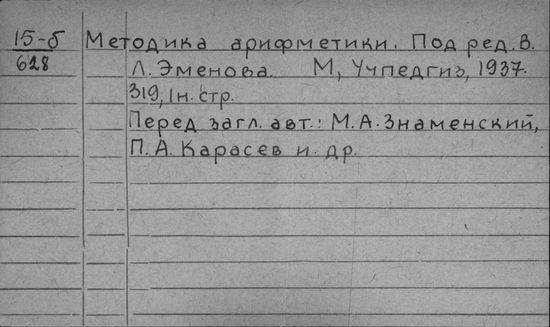 15-б Методика арифметики. Под ред. В.
628 Л. Эменова. М, Учпедгиз, 1937.
319, 1н. стр.
Перед загл. авт.: М.А. Знаменский,
П.А. Карасев и. др.